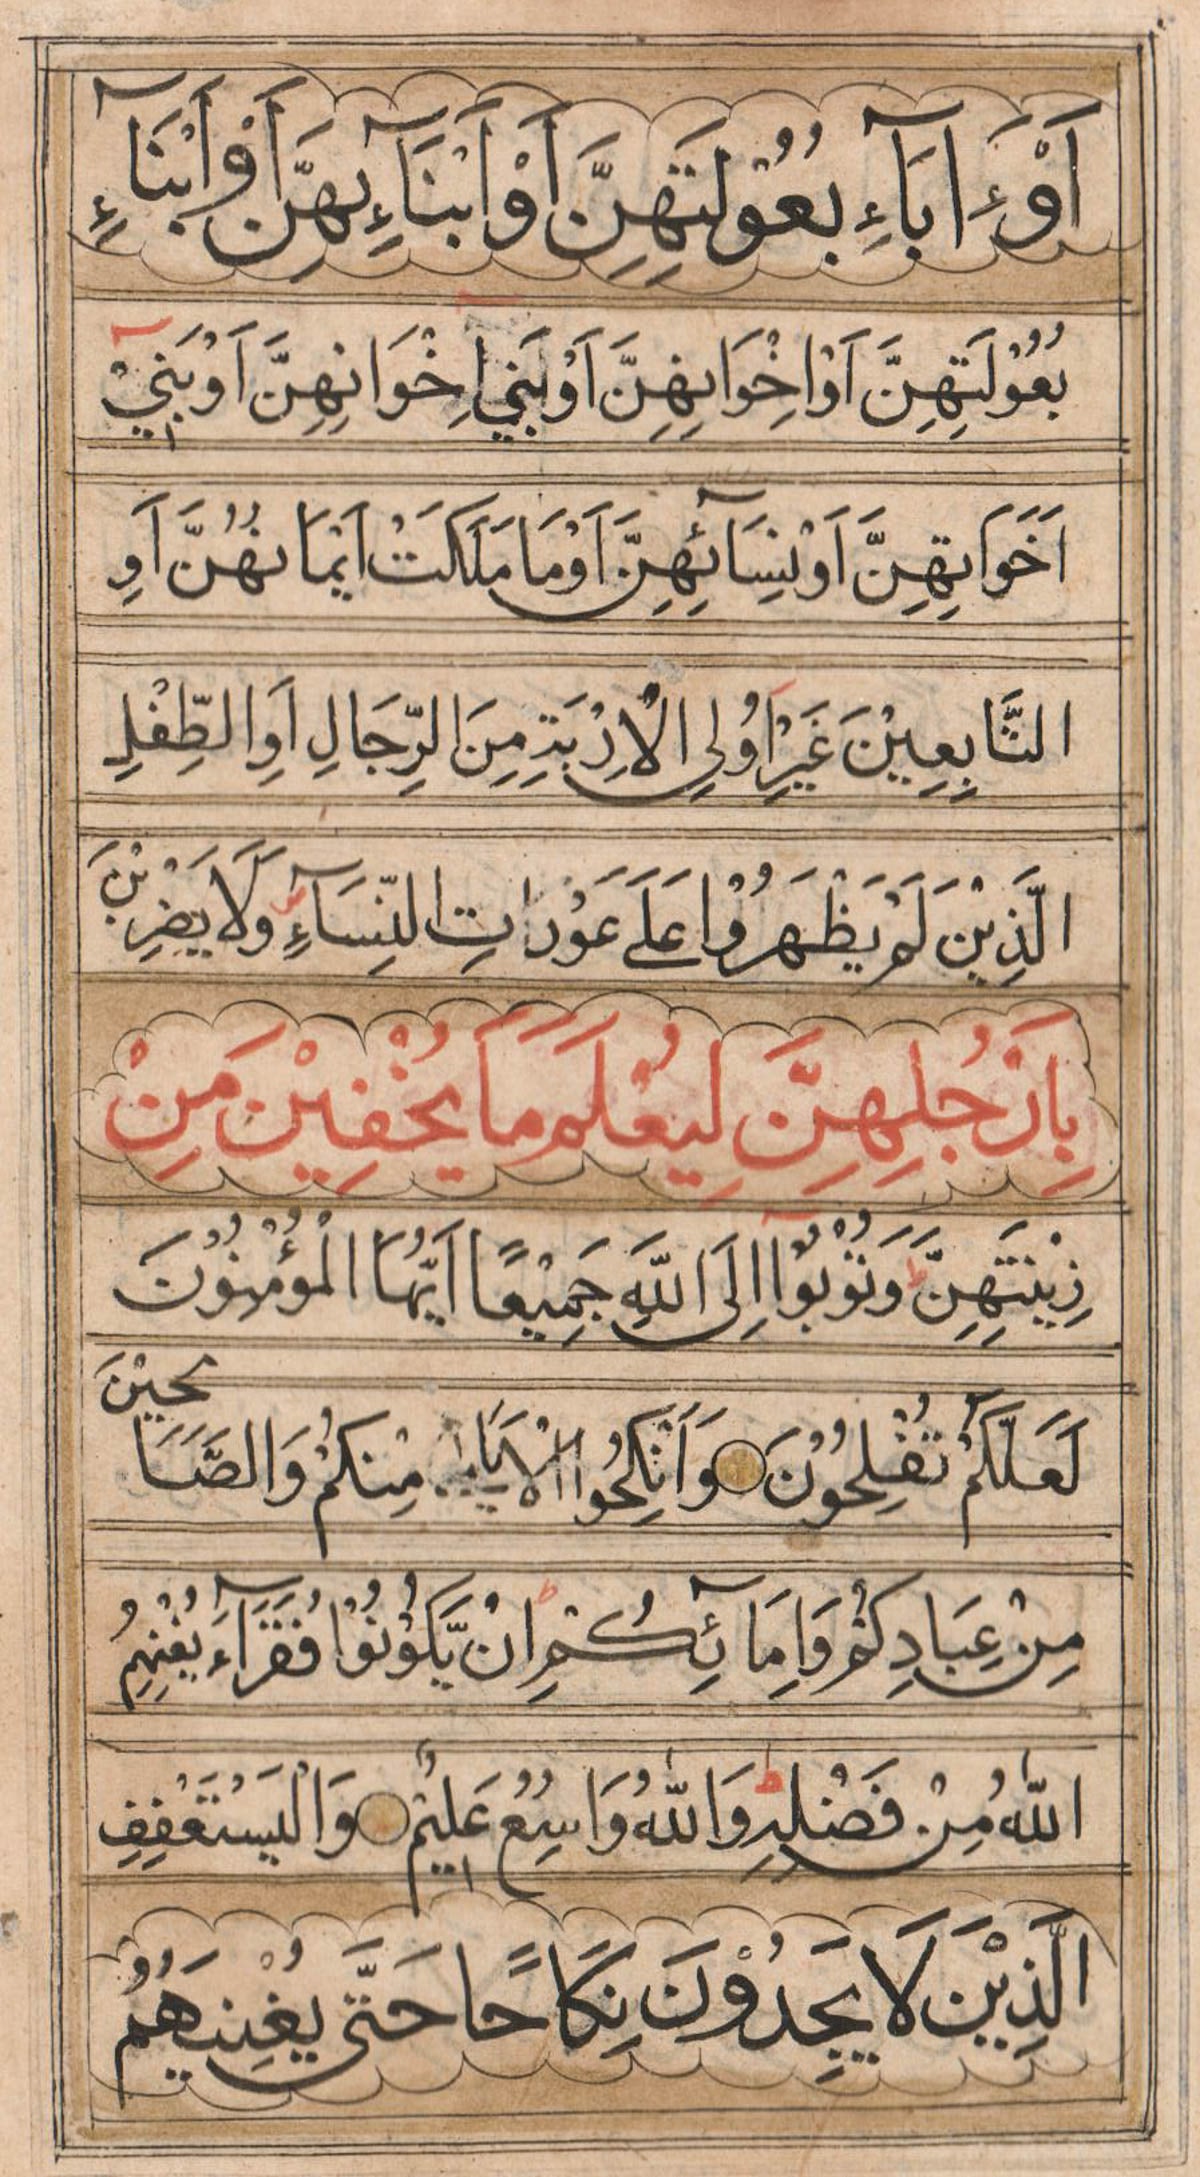 اَوْءَابَآءِ بُعُوْلَتِهِنَّ اَوْاَبْنَآءِهِنَّ اَوْاَبْنَآءِ
بُعُوْلَتِهِنَّ اَوْاِخْوَانِهِنَّ اَوْبَنِيْ اِخْوَانِهِنَّ اَوْبَنِيْ
اَخَوَاتِهِنَّ اَوْنِسَآئِهِنَّ اَوْمَامَلَكَتْ اَيْمَانُهُنَّ اَوِ
التَّابِعِيْنَ غَيْرِاُولِى الْاِرْبَةِ مِنَ الرِّجَالِ اَوِالطِّفْلِ
الَّذِيْنَ لَمْ يَظْهَرُوْا عَلَے عَوْرَاتِ النِّسَآءِ وَلَا يَضْرِبْنَ
بِاَرْجُلِهِنَّ لِيُعْلَمَ مَا يُخْفِيْنَ مِنْ
زِيْنَتِهِنَّ وَتُوْبُوْا اِلَى اللّٰهِ جَمِيْعًا اَيُّهَا الْمُؤْمِنُوْنَ
لَعَلَّكُمْ تُفْلِحُوْنَ وَاَنْكِحُوا الْاَيَامٰى مِنْكُمْ وَالصَّالِحِيْنَ
مِنْ عِبَادِكُمْ وَاِمَآئِكُمْ اِنْ يَّكُوْنُوْا فُقَرَآءَ يُغْنِهِمُ
اللّٰهُ مِنْ فَضْلِهٖ وَاللّٰهُ وَاسِعٌ عَلِيْمٌ وَالْيَسْتَعْفِفِ
الَّذِيْنَ لَا يَجِدُوْنَ نِكَاحًا حَتّٰى يُغْنِيَهُمُ